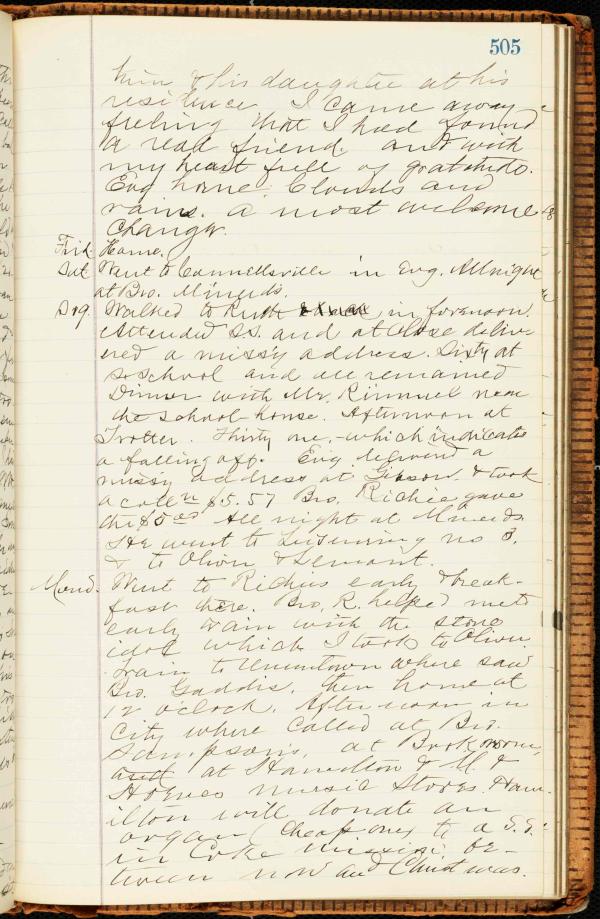 505
him & his daughter at his
residence I came away
feeling that I had found
a real friend. and with
my heart full of gratitude.
Evg home Clouds and
rains. a most welcome
change.
Frid. Home.
Sat. Went to Connellsville in Evg. All night
at Bro. Minerds.
Walked to in forenoon.
Attended S.S. and at close deliv-
ered a missy address. Sixty at
S. School and all remained
Dinner with Mr. Rimmel near
the school house. Afternoon at
Trotter. Thirty one, which indicates
a falling off. Evg delivered a
missy address at Gibson & took
a collen $5.57 Bro. Richie gave
the $5.00 All night at Minerds
He went to Leisenring no 3.
& to Oliver & Lemont.
Mond. Went to Richies early & break-
fast there. Bro. R. helped me to
early train with the stone
idol which I took to Oliver.
Train to Uniontown where saw
Bro. Gaddis, then home at
12 o'clock. Afternoon in
City where called at Bro.
Sampson's, at
and at Hamilton & M. &
music Stores. Ham-
ilton will donate an
organ (cheap one) to a S.S.
in Coke mission be-
tween now and Christmas.